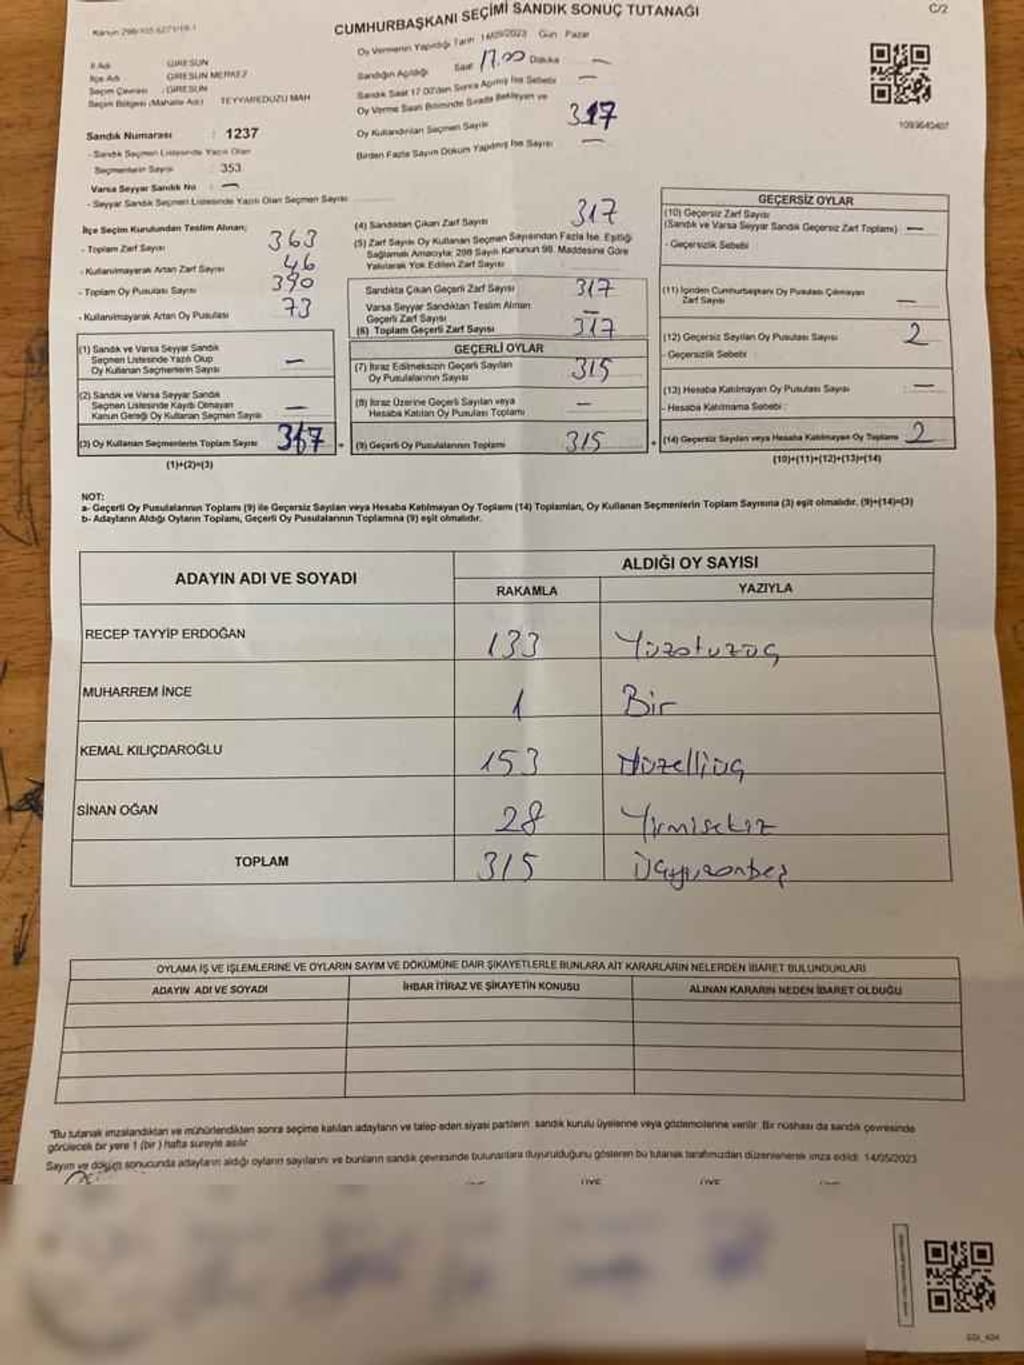 CUMHURBAŞKANI SEÇİMİ SANDIK SONUÇ TUTANAĞI
C/2
Oy Vermenin Yapıldığı Tarih 14/05/2023 Gün Pazar
Sandığın Açıldığı Saat 17.00 Dakika —
Sandık Saat 17.00'den Sonra Açılmış İse Sebebi —
Oy Verme Saati Bitiminde Sırada Bekleyen ve
Oy Kullandırılan Seçmen Sayısı 317
Birden Fazla Sayım Döküm Yapılmış İse Sayısı —
İl Adı : GİRESUN
İlçe Adı : GİRESUN MERKEZ
Seçim Çevresi : GİRESUN
Seçim Bölgesi (Mahalle Adı) : TEYYAREDÜZÜ MAH
Sandık Numarası : 1237
- Sandık Seçmen Listesinde Yazılı Olan
Seçmenlerin Sayısı : 353
Varsa Seyyar Sandık No : —
- Seyyar Sandık Seçmen Listesinde Yazılı Olan Seçmen Sayısı
İlçe Seçim Kurulundan Teslim Alınan;
- Toplam Zarf Sayısı 363
- Kullanılmayarak Artan Zarf Sayısı 46
- Toplam Oy Pusulası Sayısı 390
- Kullanılmayarak Artan Oy Pusulası 73
(1) Sandık ve Varsa Seyyar Sandık
Seçmen Listesinde Yazılı Olup
Oy Kullanan Seçmenlerin Sayısı —
(2) Sandık ve Varsa Seyyar Sandık
Seçmen Listesinde Kayıtlı Olmayan
Kanun Gereği Oy Kullanan Seçmen Sayısı —
(3) Oy Kullanan Seçmenlerin Toplam Sayısı 317 =
(1)+(2)=(3)
(4) Sandıktan Çıkan Zarf Sayısı 317
(5) Zarf Sayısı Oy Kullanan Seçmen Sayısından Fazla İse, Eşitliği
Sağlamak Amacıyla; 298 Sayılı Kanunun 98. Maddesine Göre
Yakılarak Yok Edilen Zarf Sayısı
Sandıkta Çıkan Geçerli Zarf Sayısı 317
Varsa Seyyar Sandıktan Teslim Alınan
Geçerli Zarf Sayısı —
(6) Toplam Geçerli Zarf Sayısı 317
GEÇERLİ OYLAR
(7) İtiraz Edilmeksizin Geçerli Sayılan
Oy Pusulalarının Sayısı 315
(8) İtiraz Üzerine Geçerli Sayılan veya
Hesaba Katılan Oy Pusulası Toplamı —
(9) Geçerli Oy Pusulalarının Toplamı 315 +
GEÇERSİZ OYLAR
(10) Geçersiz Zarf Sayısı
(Sandık ve Varsa Seyyar Sandık Geçersiz Zarf Toplamı) —
- Geçersizlik Sebebi :
(11) İçinden Cumhurbaşkanı Oy Pusulası Çıkmayan
Zarf Sayısı —
(12) Geçersiz Sayılan Oy Pusulası Sayısı 2
- Geçersizlik Sebebi :
(13) Hesaba Katılmayan Oy Pusulası Sayısı —
- Hesaba Katılmama Sebebi :
(14) Geçersiz Sayılan veya Hesaba Katılmayan Oy Toplamı 2
(10)+(11)+(12)+(13)=(14)
NOT:
a- Geçerli Oy Pusulalarının Toplamı (9) ile Geçersiz Sayılan veya Hesaba Katılmayan Oy Toplamı (14) Toplamları, Oy Kullanan Seçmenlerin Toplam Sayısına (3) eşit olmalıdır. (9)+(14)=(3)
b- Adayların Aldığı Oyların Toplamı, Geçerli Oy Pusulalarının Toplamına (9) eşit olmalıdır.
ADAYIN ADI VE SOYADI
ALDIĞI OY SAYISI
RAKAMLA YAZIYLA
RECEP TAYYİP ERDOĞAN 133 Yüzotuzüç
MUHARREM İNCE 1 Bir
KEMAL KILIÇDAROĞLU 153 Yüzelliüç
SİNAN OĞAN 28 Yirmisekiz
TOPLAM 315 Üçyüzonbeş
OYLAMA İŞ VE İŞLEMLERİNE VE OYLARIN SAYIM VE DÖKÜMÜNE DAİR ŞİKAYETLERLE BUNLARA AİT KARARLARIN NELERDEN İBARET BULUNDUKLARI
ADAYIN ADI VE SOYADI İHBAR İTİRAZ VE ŞİKAYETİN KONUSU ALINAN KARARIN NEDEN İBARET OLDUĞU
"Bu tutanak imzalandıktan ve mühürlendikten sonra seçime katılan adayların ve talep eden siyasi partilerin sandık kurulu üyelerine veya gözlemcilerine verilir. Bir nüshası da sandık çevresinde
görülecek bir yere 1 (bir) hafta süreyle asılır.
Sayım ve döküm sonucunda adayların aldığı oyların sayılarını ve bunların sandık çevresinde bulunanlara duyurulduğunu gösteren bu tutanak tarafımızdan düzenlenerek imza edildi. 14/05/2023